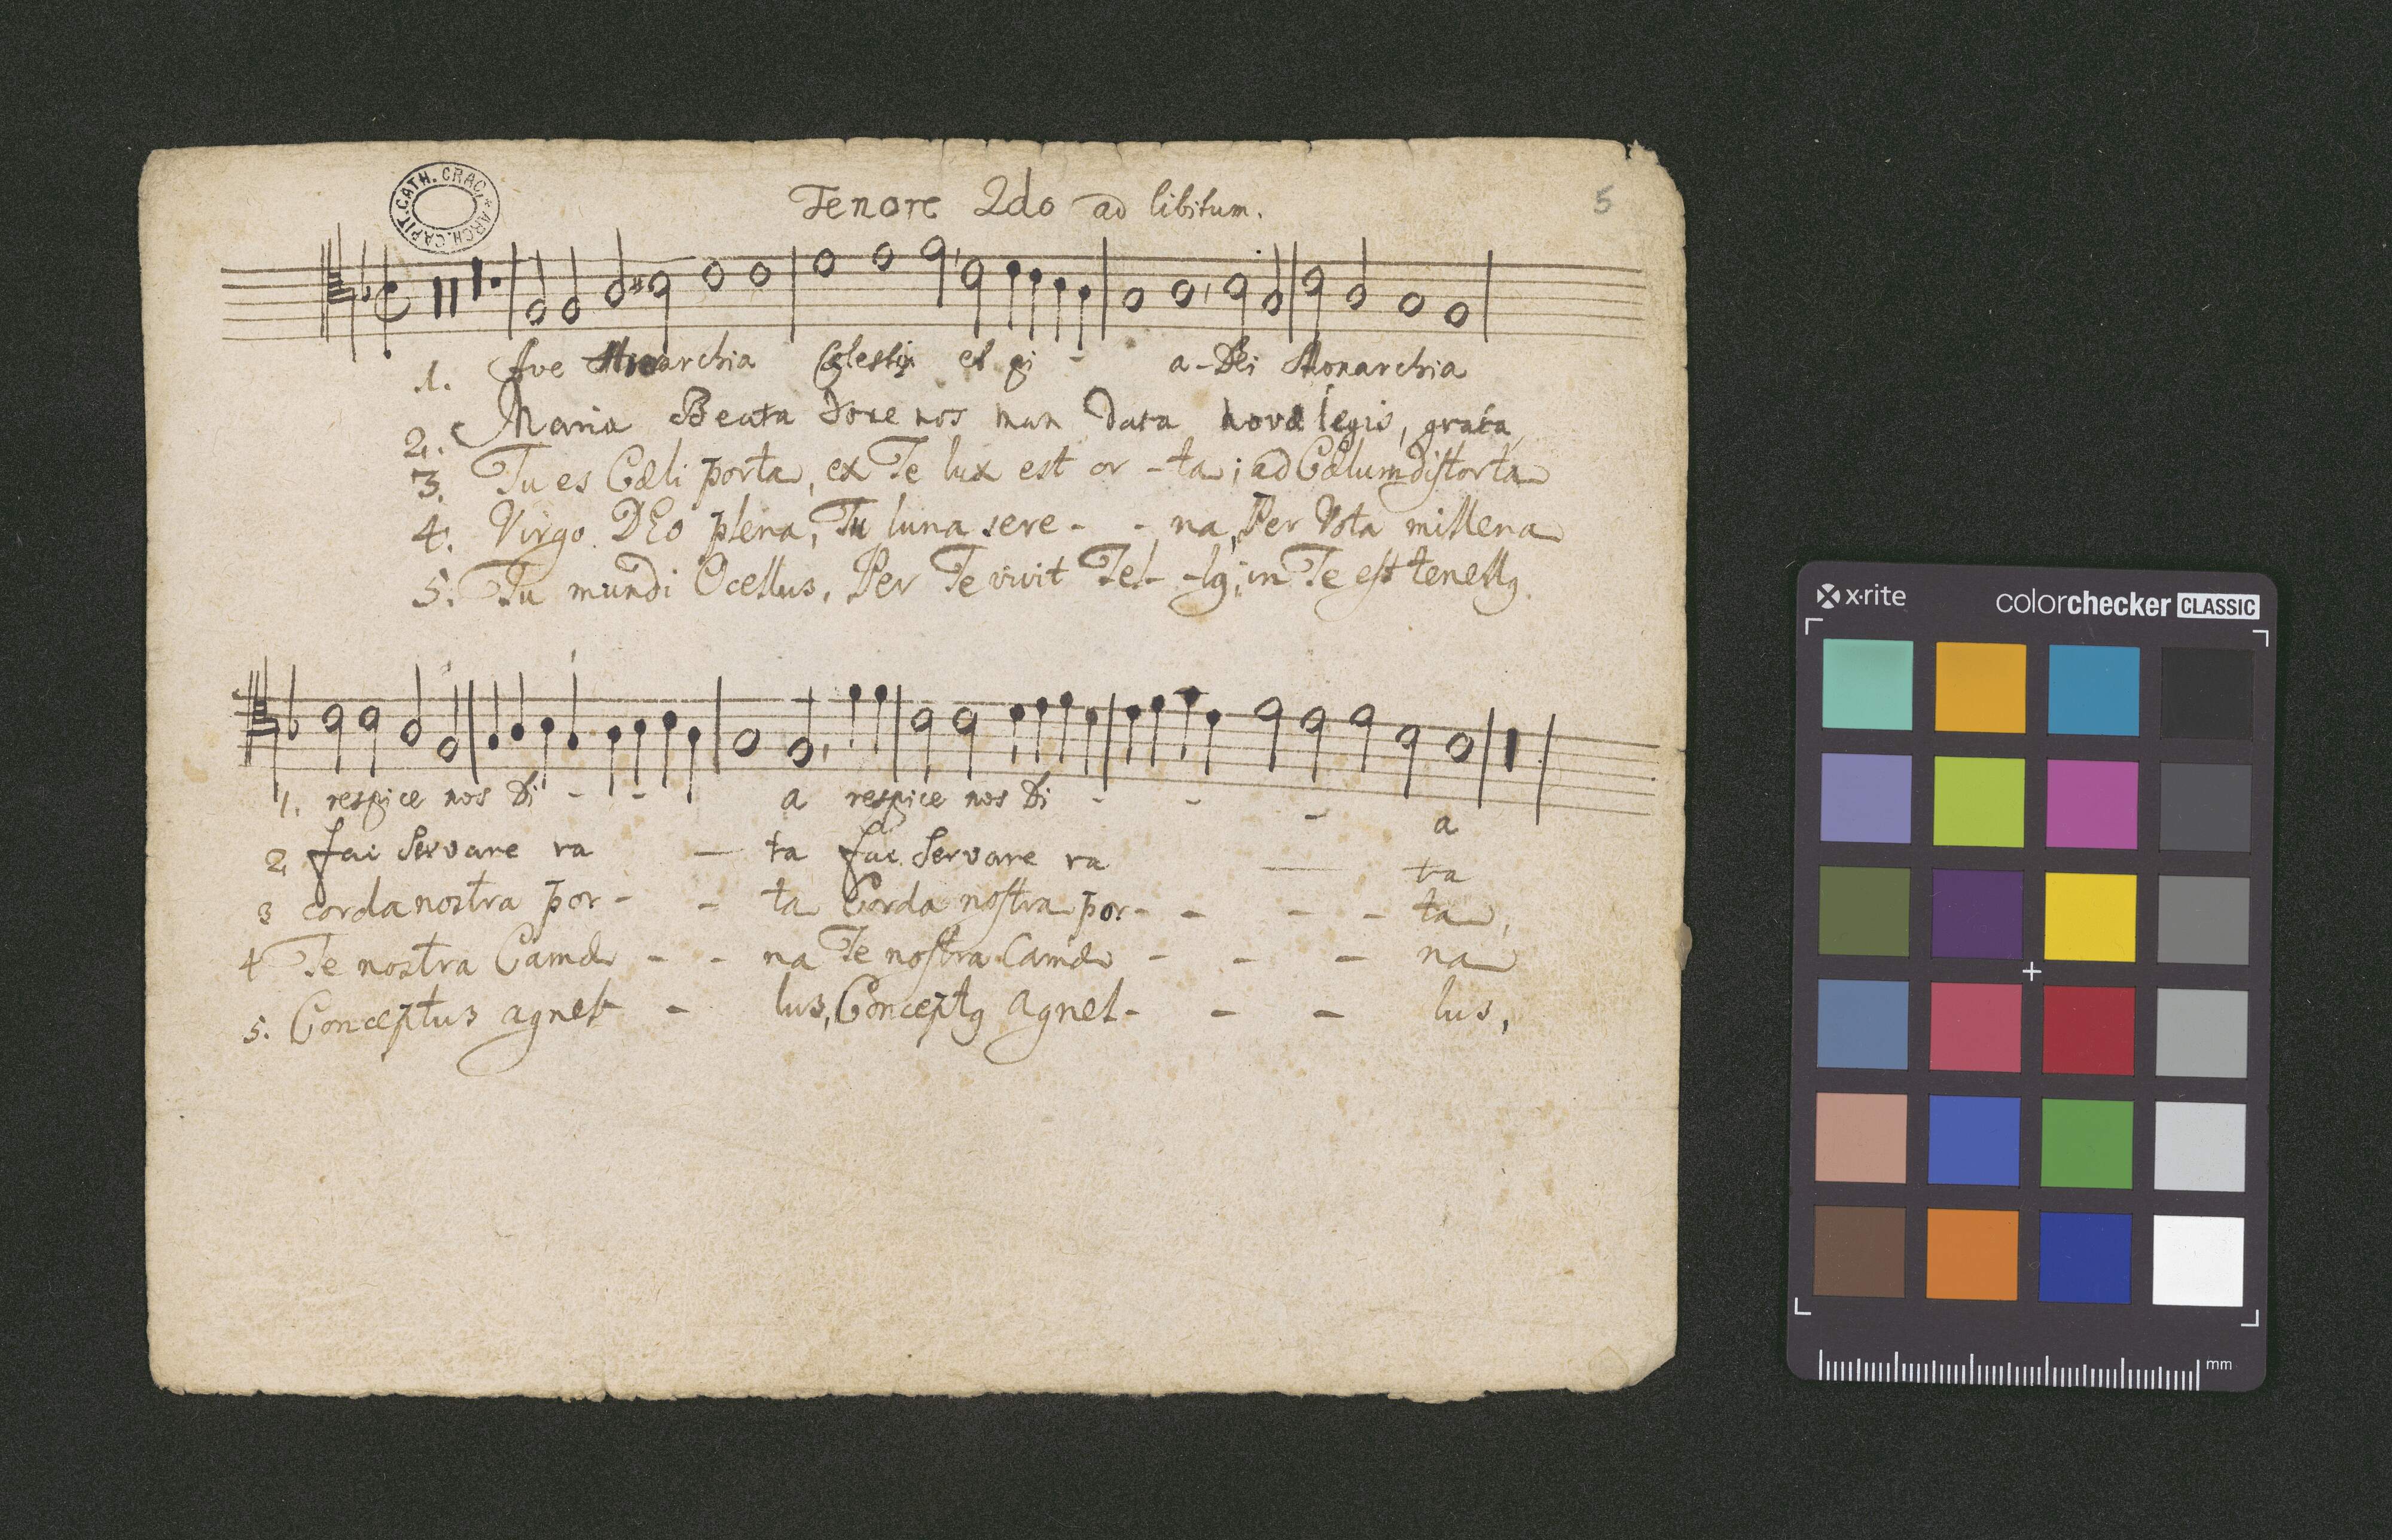 Tenore 2do ad libitum.
5
CAPIT. CATH. CRAC. * ARCH.
1. Ave Hierarchia Cœlestis et pi - a - Dei Monarchia
2. Maria Beata doce nos man data novæ legis, grata,
3. Tu es Cæli porta, ex Te lux est or - ta; ad Cælum distorta
4. Virgo DEo plena, Tu luna sere - - na, Per Vota millena
5. Tu mundi Ocellus, Per Te vivit Tel - lꝰ; in Te est tenellꝰ
1. respice nos di - - - a respice nos di - - - a
2 fac servare ra — ta fac servare ra — ta
3 corda nostra por - - ta Corda nostra por - - - - ta,
4 Te nostra Camæ - - na Te nostra Camæ - - - na
5. Conceptus agnel - lus, Conceptꝰ agnel - - - lus,
x·rite
colorchecker CLASSIC
mm